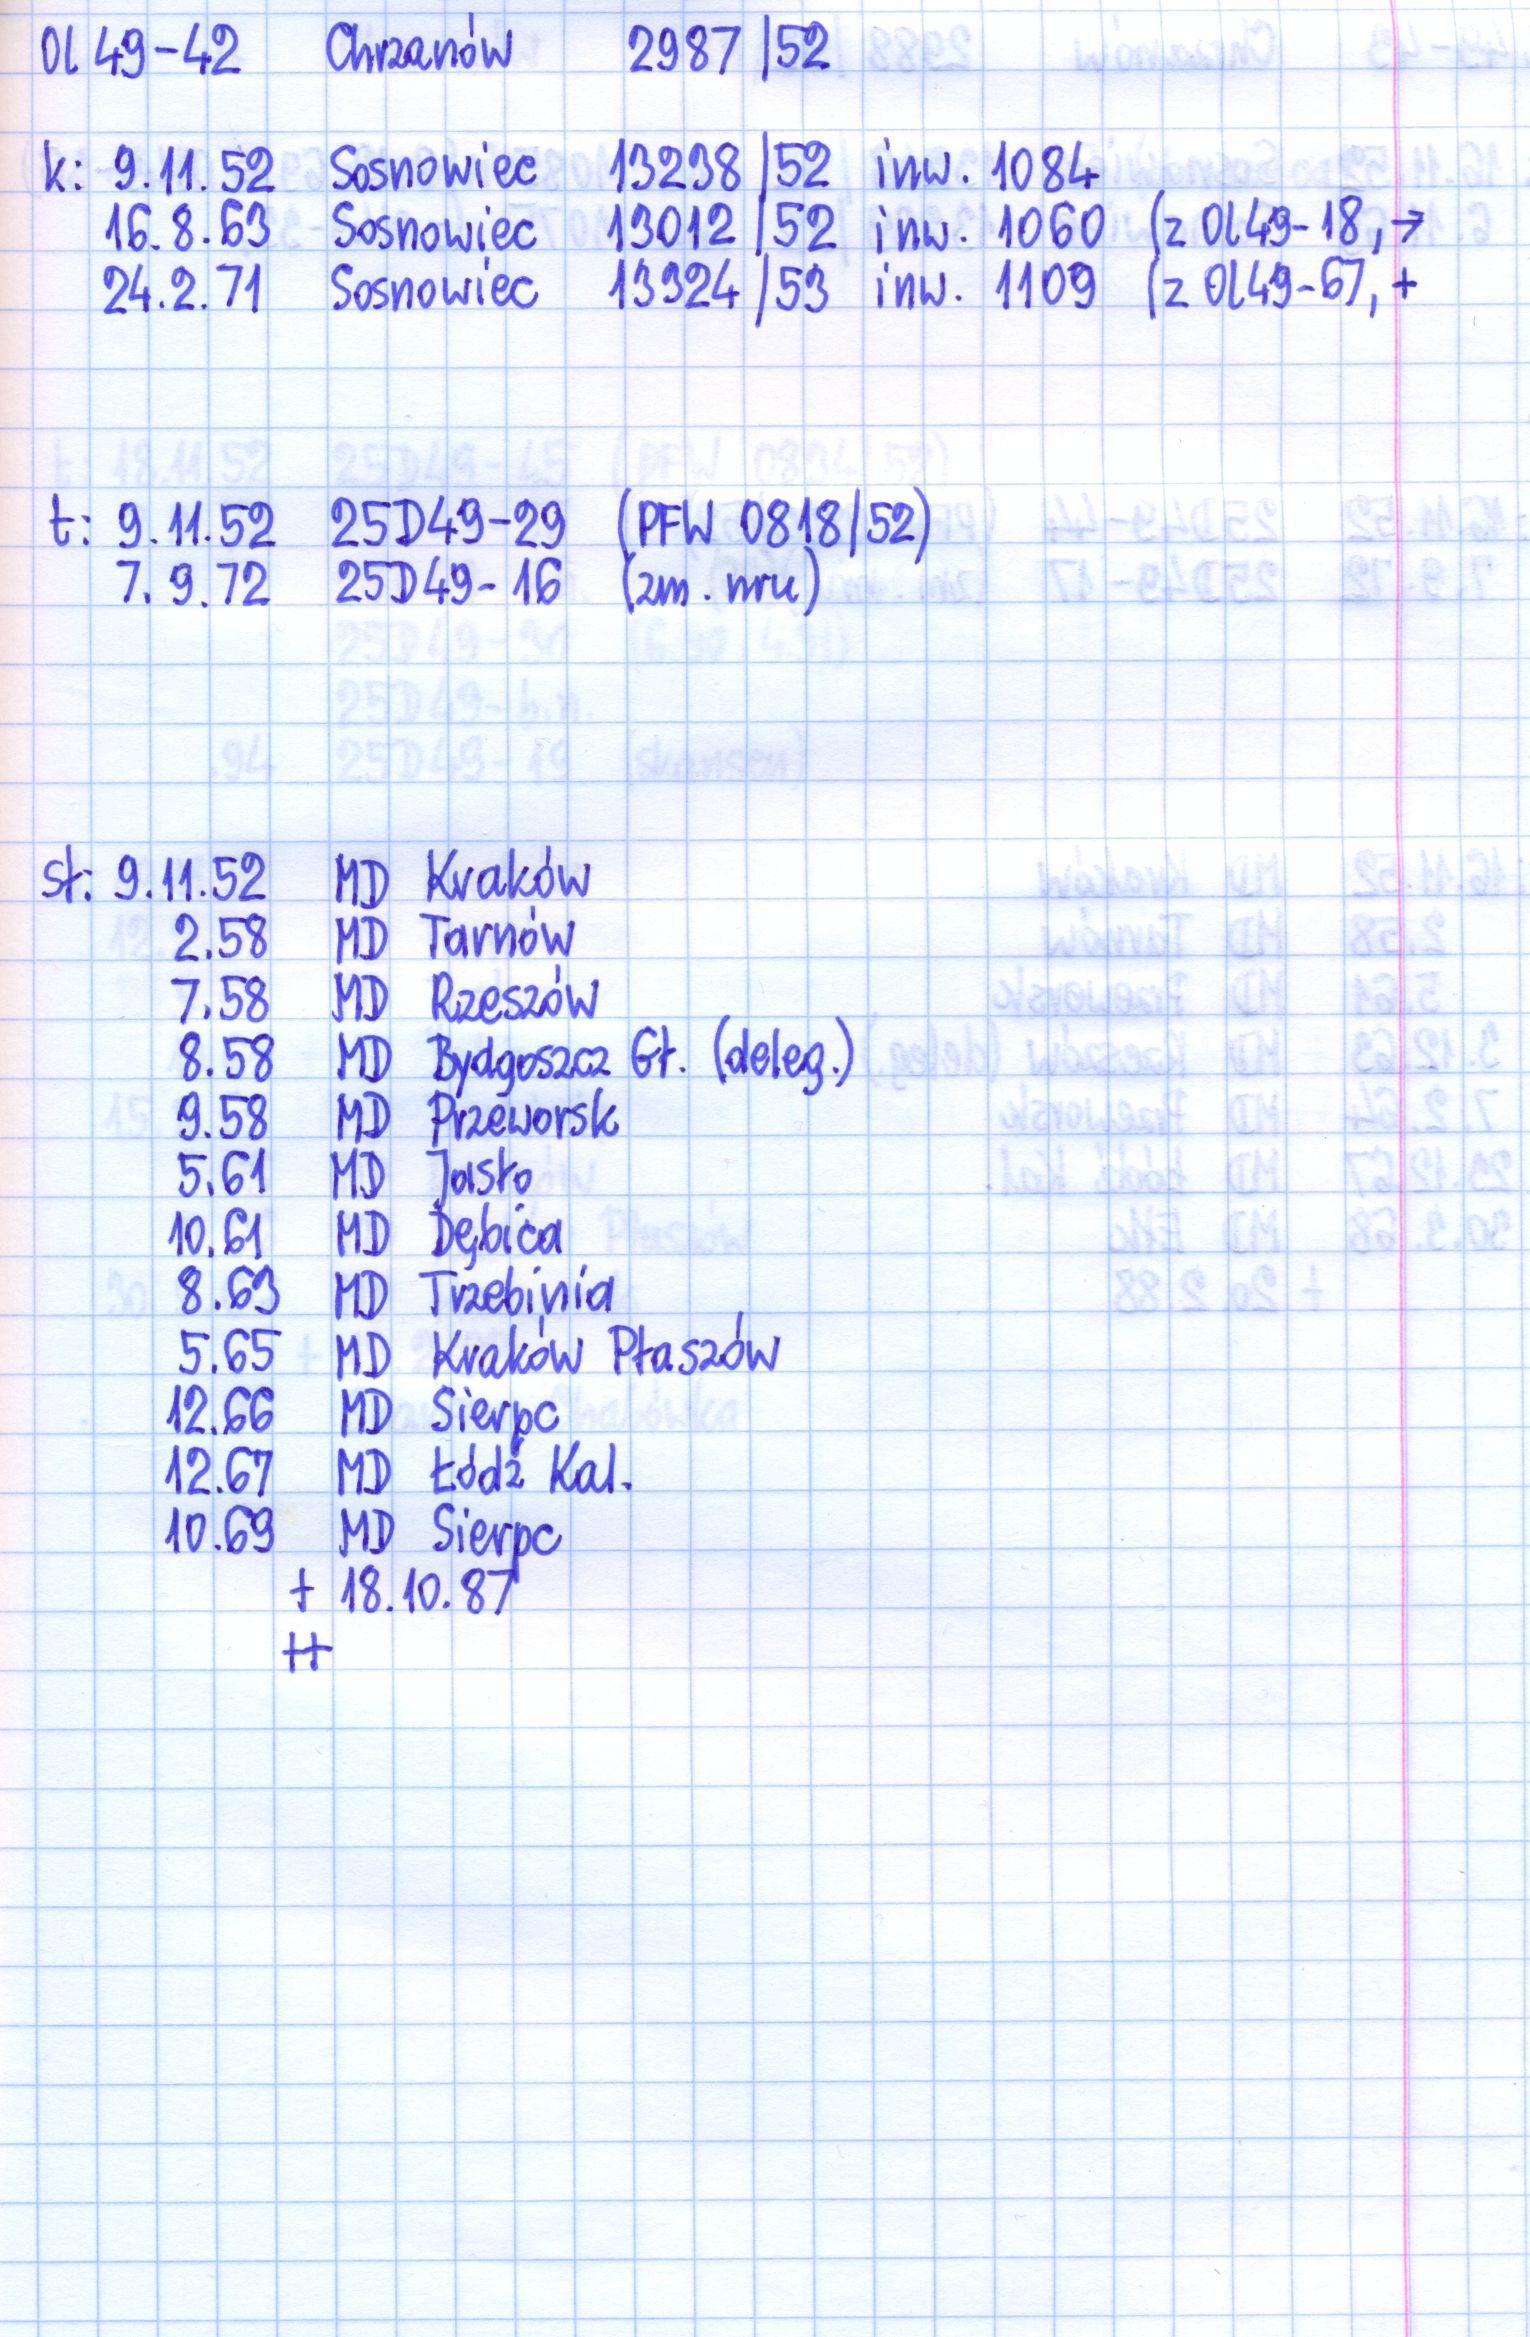 Ol 49-42 Chrzanów 2987/52
k: 9.11.52 Sosnowiec 13238/52 inw. 1084
16.8.63 Sosnowiec 13012/52 inw. 1060 (z Ol49-18, →
24.2.71 Sosnowiec 13324/53 inw. 1109 (z Ol49-67, +
t: 9.11.52 25D49-29 (PFW 0818/52)
7.9.72 25D49-16 (zm. nru)
st: 9.11.52 MD Kraków
2.58 MD Tarnów
7.58 MD Rzeszów
8.58 MD Bydgoszcz Gł. (deleg.)
9.58 MD Przeworsk
5.61 MD Jasło
10.61 MD Dębica
8.63 MD Trzebinia
5.65 MD Kraków Płaszów
12.66 MD Sierpc
12.67 MD Łódź Kal.
10.69 MD Sierpc
+ 18.10.87
++